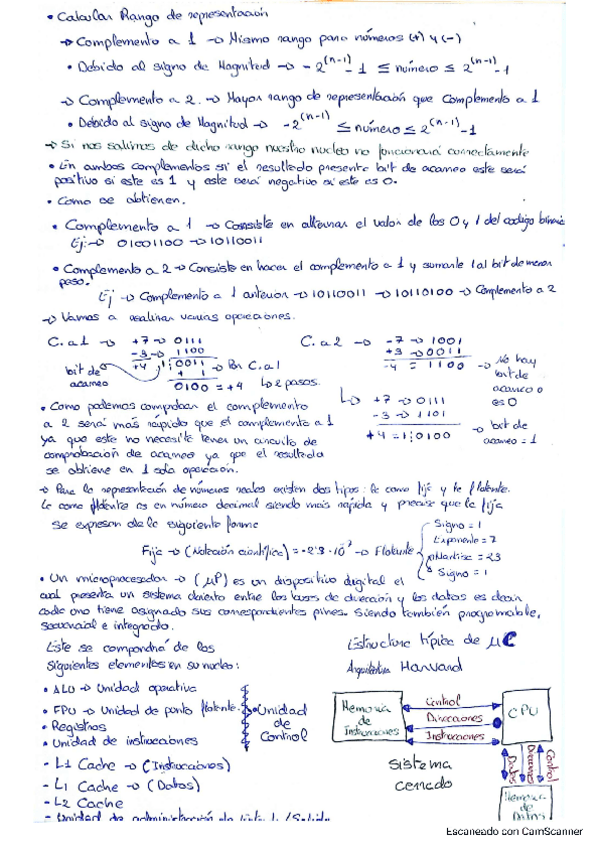 • Calcular Rango de representación
→ Complemento a 1 → Mismo rango para números (+) y (-)
• Debido al signo de Magnitud → - 2^(n-1) - 1 ≤ número ≤ 2^(n-1) - 1
→ Complemento a 2. → Mayor rango de representación que Complemento a 1
• Debido al signo de Magnitud → -2^(n-1) ≤ número ≤ 2^(n-1) - 1
→ Si nos salimos de dicho rango nuestro nucleo no funcionará correctamente
• En ambos complementos si el resultado presente bit de acarreo este será
positivo si este es 1 y este será negativo si este es 0.
• Como se obtienen.
• Complemento a 1 → Consiste en alternar el valor de los 0 y 1 del codigo binario
Ej: → 01001100 → 10110011
• Complemento a 2 → Consiste en hacer el complemento a 1 y sumarle 1 al bit de menor
peso.
Ej → Complemento a 1 anterior → 10110011 → 10110100 → Complemento a 2
→ Vamos a realizar varias operaciones.
C. a 1 → +7 → 0111
-3 → 1100
+4 1:0011 → Por C.a 1
bit de
acarreo
+ 1
0100 = +4 ↳ 2 pasos.
C. a 2 → -7 → 1001
+3 → 0011
-4 = 1100 → No hay
bit de
acarreo o
es 0
↳ +7 → 0111
-3 → 1101
+4 = 1:0100 → bit de
acarreo = 1
• Como podemos comprobar el complemento
a 2 será más rápido que el complemento a 1
ya que este no necesita tener un circuito de
comprobación de acarreo ya que el resultado
se obtiene en 1 sola operación.
→ Para la representación de números reales existen dos tipos: la coma fija y la flotante.
La coma flotante es en número decimal siendo más rápida y precisa que la fija
se expresan de la siguiente forma
Fija → (Notación científica) = -2'3 · 10⁻² → Flotante
Signo = 1
Exponente = 7
Mantisa = 23
Signo = 1
• Un microprocesador → (μP) es un dispositivo digital el
cual presenta un sistema abierto entre los buses de dirección y los datos es decir
cada uno tiene asignado sus correspondientes pines. Siendo también programable,
secuencial e integrado.
Este se compondrá de los
siguientes elementos en su nucleo:
• ALU → Unidad operativa
• FPU → Unidad de punto flotante.
• Registros
• Unidad de instrucciones
- L1 Cache → (Instrucciones)
- L1 Cache → (Datos)
- L2 Cache
- Unidad de administración de
• Unidad
de
Control
Estructura típica de μC
Arquitectura Harvard
Memoria
de
Instrucciones
Control
Direcciones
Instrucciones
CPU
Sistema
cerrado
Datos
Direcciones
Control
Memoria
de
Datos
Escaneado con CamScanner